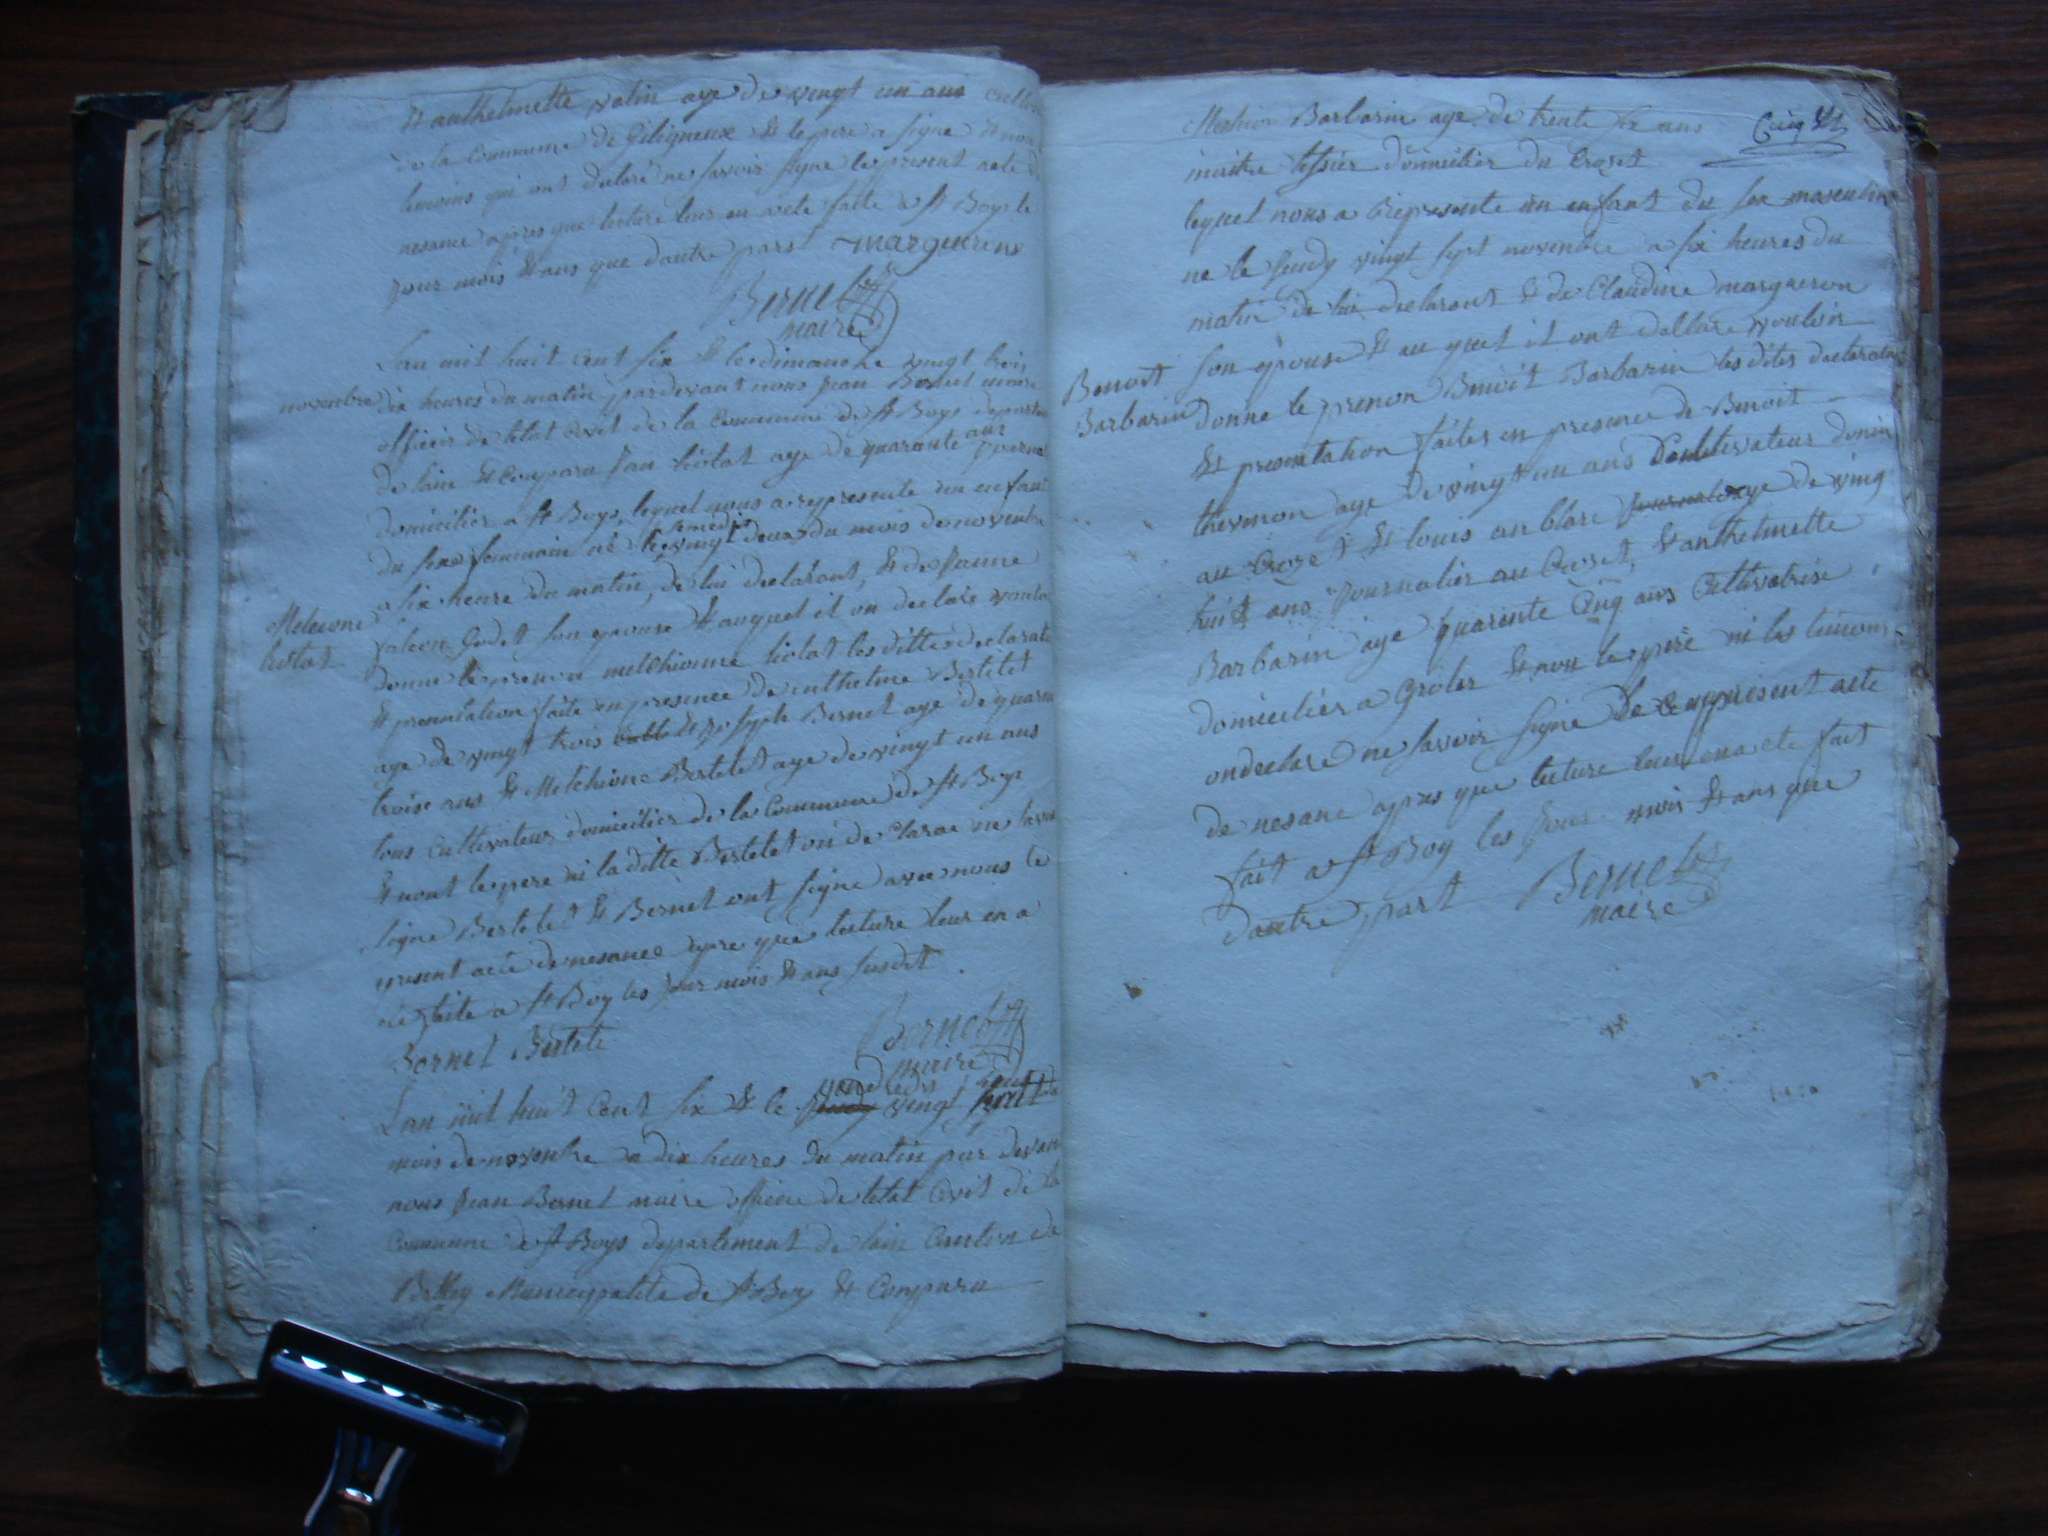 & anthelmette vatin age de vingt un ans
de la Commune de Giligneux & le pere a signe & non
temoins qui ont declaré ne savoir signe le present acte
nesance apres que lecture leur en a ete faite a st Boys le
jour mois & ans que dautre part marguerend
Bernet
maire
Lan mil huit cent six & le dimanche vingt trois
novembre dix heures du matin pardevant nous jean Bernet maire
officier de letat civil de la commune de st Boys departe
de lain & Conparu jean hotat age de quarante ans journa
domicilier a st Boys, lequel nous a represente un enfant
du sexe feminin né le samedi vingt deux du mois de novembre
a six heure du matin, de lui declarant, & de jeanne
Godet son epouse & auquel il on declare voula
donne le prenon melchionne hotat les ditte declarati
& presentation faite en presence de anthelme Bertelet
age de vingt trois & joseph Bernet age de quaran
troise ans & Melchione Bertelet age de vingt un ans
tous cultivateur domicilier de la Commune de st Boys
& nont le pere ni la ditte Bertelet on declarae ne savoi
signe Bertelet & Bernet ont signe avec nous le
present acte de nesance apre que lecture leur en a
ete faite a st Boy les jour mois & ans susdit
Bernet Bertele
Bernet
maire
Lan mil huit Cent six & le vandredis vingt huit
mois de novenbre a dix heures du matin par devan
nous jean Bernet maire officier de letat Civil de la
Commune de st Boys departement de lain Canton de
Belley Municipalite de st Boy & Conparu
Melchior Barbarin age de trente six ans
maitre tessier domicilier du Crozet
lequel nous a represente un enfant du sex masculin
ne le jeudy vingt sept novenbre a six heures du
matin de lui declarant & de Claudine margueron
son epouse & au quel il ont declare vouloir
Benoit
Barbarin
donne le prenon Benoit Barbarin les dites declaration
& presentation faites en presence de Benoit
thevenon age de vingt un ans Cultivateur domici
au Crozet & louis anblare journalier age de ving
huit ans journalier au Crozet, & anthelmette
Barbarin age quarente Cinq ans Cultivatrise
domicilier a Groler & non le pere ni les temoins
on declare ne savoir signe le present acte
de nesanc apres que lecture leur en a ete fait
fait a st Boy les jour mois & ans que
dautre part
Bernet
maire